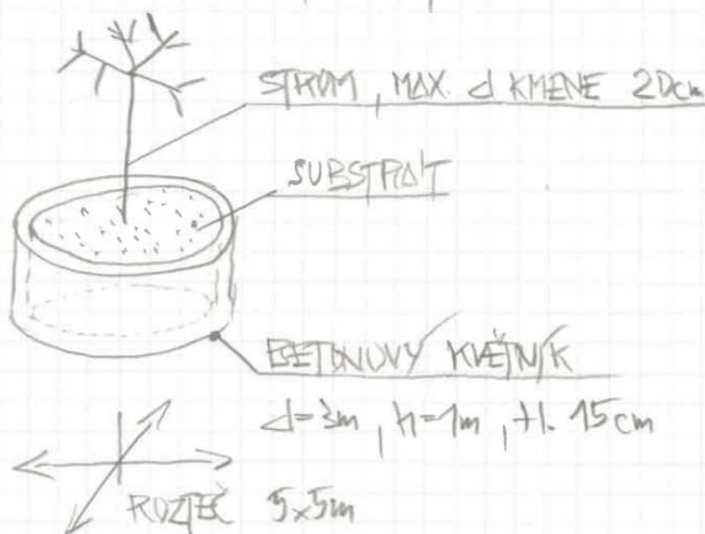 STROM, MAX. d KMENE 20cm
SUBSTRÁT
BETONOVÝ KVĚTNÍK
d=3m, h=1m, tl. 15cm
ROZTEČ 5x5m